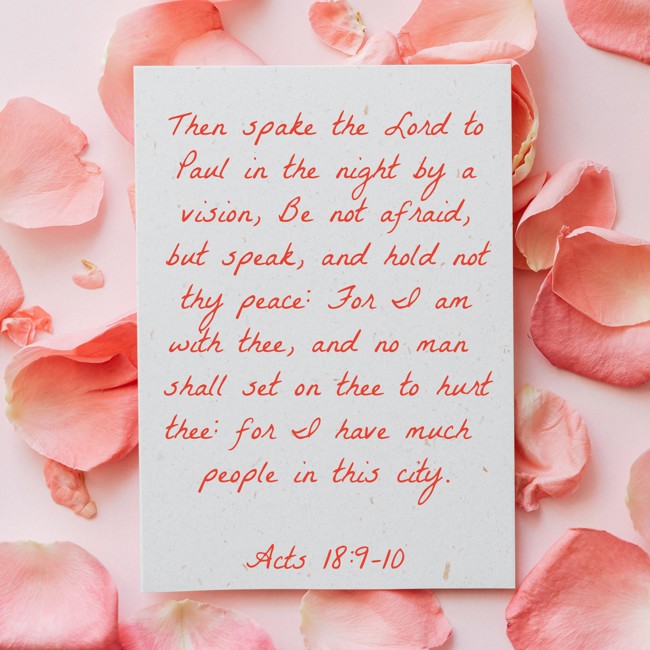 Then spake the Lord to
Paul in the night by a
vision, Be not afraid,
but speak, and hold not
thy peace: For I am
with thee, and no man
shall set on thee to hurt
thee: for I have much
people in this city.
Acts 18:9-10